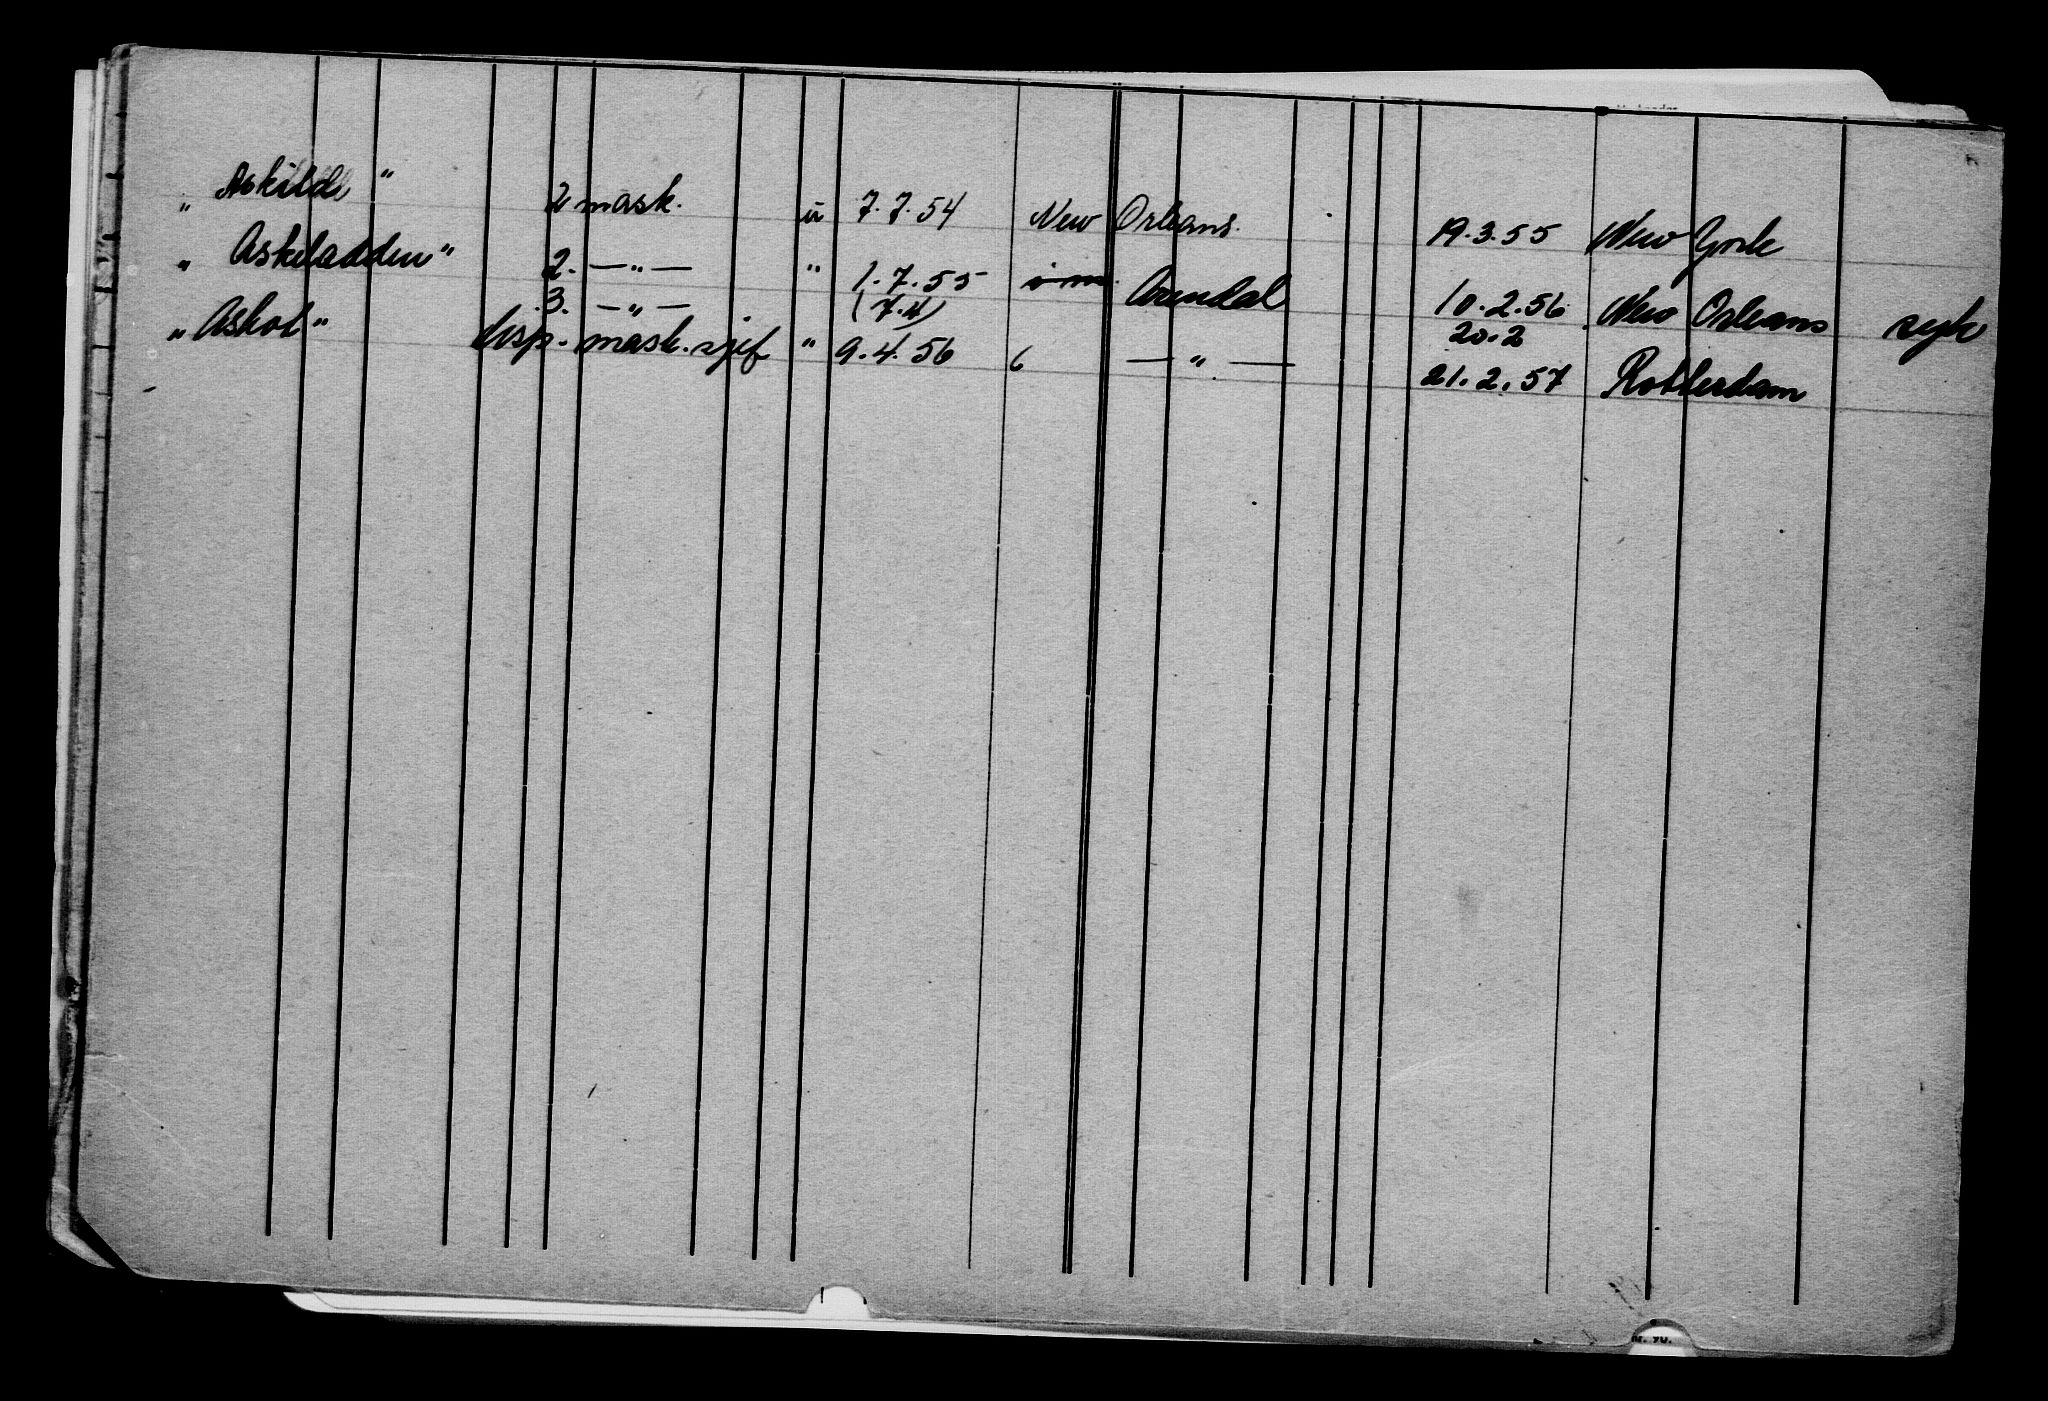 „ Askild " 2 mask. u 7.7.54 New Orleans. 19.3.55 New York
„ Askeladden " 2. — „ — " 1.7.55 Arendal 10.2.56 New Orleans syk
3. — „ — (7.4) 20.2
„ Askot " disp. mask. sjef " 9.4.56 6 — " — 21.2.57 Rotterdam